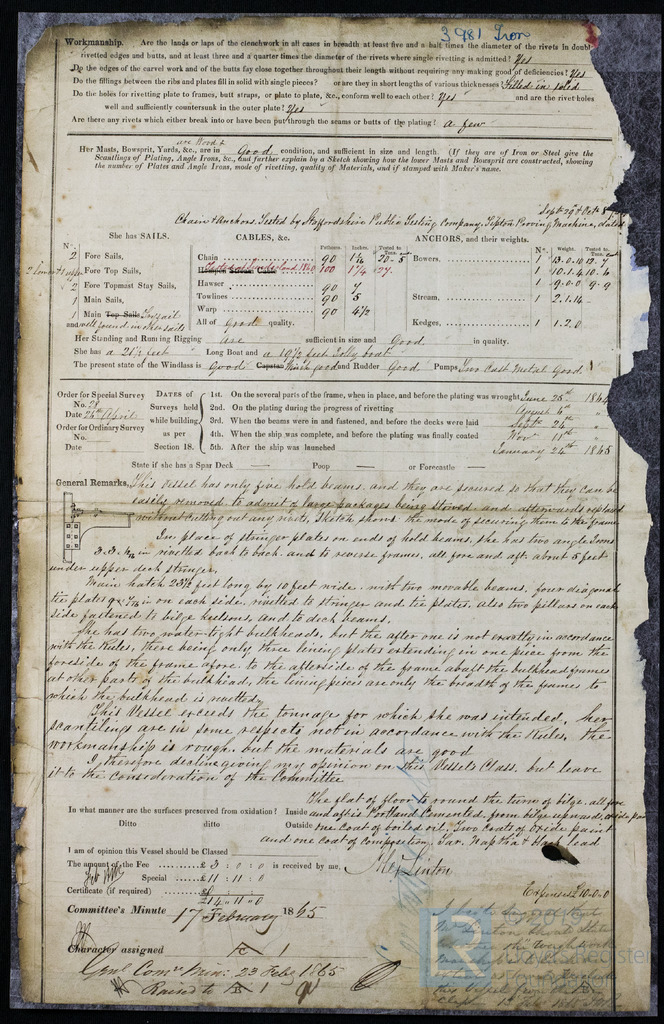 3981 Iron
Workmanship. Are the lands or laps of the clenchwork in all cases in breadth at least five and a half times the diameter of the rivets in double
rivetted edges and butts, and at least three and a quarter times the diameter of the rivets where single rivetting is admitted? Yes
Do the edges of the carvel work and of the butts fay close together throughout their length without requiring any making good of deficiencies? Yes
Do the fillings between the ribs and plates fill in solid with single pieces? or are they in short lengths of various thicknesses? Filled in solid
Do the holes for rivetting plate to frames, butt straps, or plate to plate, &c., conform well to each other? Yes and are the rivet holes
well and sufficiently countersunk in the outer plate? Yes
Are there any rivets which either break into or have been put through the seams or butts of the plating? a few
are Wood &
Her Masts, Bowsprit, Yards, &c., are in Good condition, and sufficient in size and length. (If they are of Iron or Steel give the
Scantlings of Plating, Angle Irons, &c., and further explain by a Sketch showing how the lower Masts and Bowsprit are constructed, showing
the number of Plates and Angle Irons, mode of rivetting, quality of Materials, and if stamped with Maker's name.
Sept 29 & Oct 8
Chain & Anchors Tested by Staffordshire Public Testing Company, Tipton Proving Machine, dated
She has SAILS. CABLES, &c. ANCHORS, and their weights.
N°. Fathoms. Inches. Tested to Tons. N°. Weight. Tested to Tons.
2 Fore Sails, Chain 90 1 7/16 20-5 Bowers, 1 13.0.10 12.7
Fore Top Sails, 100 1 1/4 27 1 10.1.4 10.6
2 Fore Topmast Stay Sails, Hawser 90 7 1 9.0.0 9-9
1 Main Sails, Towlines 90 5 Stream, 1 2.1.14
1 Main Top Sails Trysail Warp 90 4 1/2
and well found in other sails All of Good quality. Kedges, 1 1.2.0
Her Standing and Running Rigging are sufficient in size and Good in quality.
She has a 21 1/2 feet Long Boat and a 19 1/2 feet Jolly boat
The present state of the Windlass is Good Capstan Winch good and Rudder Good Pumps Two Cast Metal Good
Order for Special Survey
No. 28
Date 26th April
Order for Ordinary Survey
No.
Date
DATES of Surveys held while building as per Section 18.
1st. On the several parts of the frame, when in place, and before the plating was wrought June 28th 1864
2nd. On the plating during the progress of rivetting August 4th "
3rd. When the beams were in and fastened, and before the decks were laid Septr 24th "
4th. When the ship was complete, and before the plating was finally coated Nov 11th "
5th. After the ship was launched January 24th 1865
State if she has a Spar Deck — Poop — or Forecastle —
General Remarks, This Vessel has only five hold beams, and they are secured so that they can be
easily removed to admit of large packages being stowed and afterwards replaced
without cutting out any rivets, Sketch shows the mode of securing them to the frame
In place of stringer plates on ends of hold beams, she has two angle Irons
in rivetted back to back and to reverse frames, all fore and aft about 5 feet
under upper deck stringer,
Main hatch 23 1/2 feet long by 10 feet wide, with two movable beams, four diagonal
tie plates 9 x 7/16 in on each side, rivetted to stringer and tie plates, also two pillars on each
side fastened to bilge keelsons, and to deck beams.
She has two water-tight bulkheads, but the after one is not exactly in accordance
with the Rules, there being only three lining plates extending in one piece from the
foreside of the frame afore, to the afterside of the frame abaft the bulkhead frames
at other parts of the bulkhead, the lining pieces are only the breadth of the frames to
which the bulkhead is rivetted,
This Vessel exceeds the tonnage for which she was intended, her
scantlings are in some respects not in accordance with the Rules, the
workmanship is rough, but the materials are good
I therefore decline giving my opinion on this Vessels Class, but leave
it to the consideration of the Committee
The flat of floor to round the turn of bilge, all fore
In what manner are the surfaces preserved from oxidation? Inside and aft is Portland Cemented, from bilge upwards, oxide paint
Ditto ditto Outside one coat of boiled oil, Two coats of Oxide paint
and one coat of Composition, Tar, Naptha & Red lead
I am of opinion this Vessel should be Classed
The amount of the Fee £ 3 : 0 : 0 is received by me,
Special £ 11 : 11 : 0
Certificate (if required) £ 0
£ 14 : 11 : 0
Expenses £10-0-0
Committee's Minute 17 February 1865
Character assigned A 1
Genl Comee Min: 23 Feby 1865
Raised to A 1